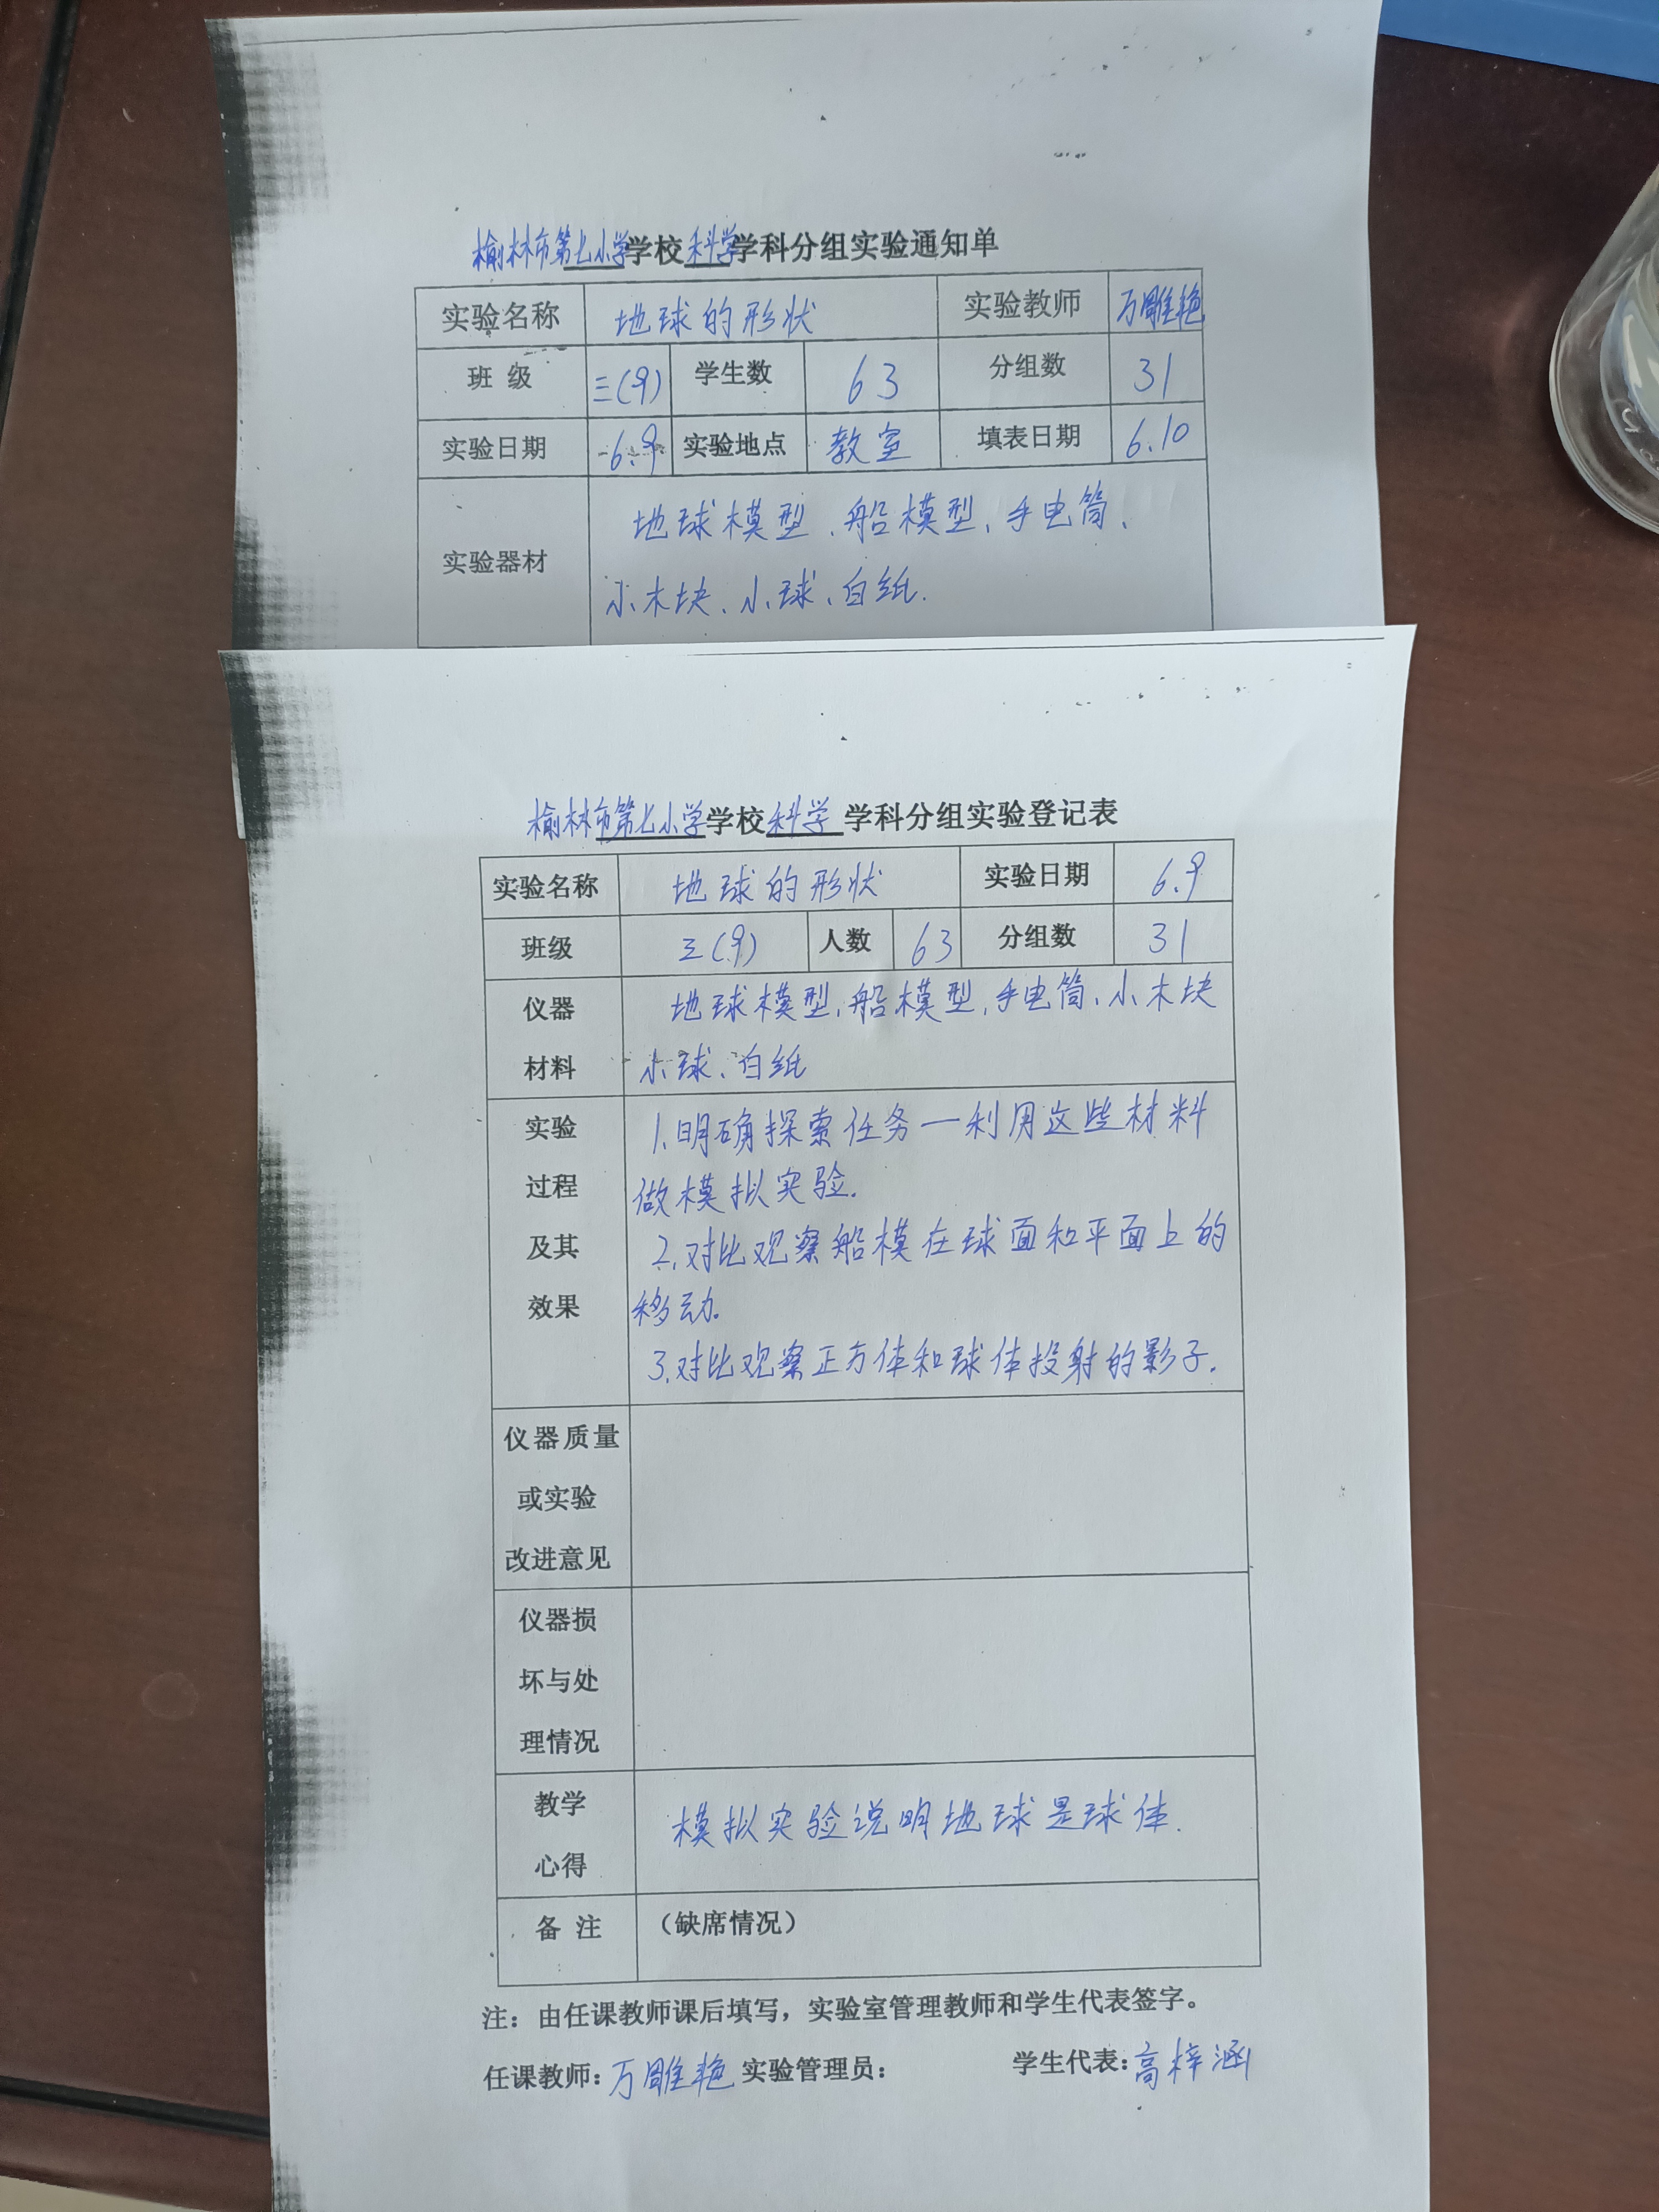 榆林市第七小学学校科学学科分组实验通知单
实验名称 地球的形状 实验教师 万雕艳
班级 三(9) 学生数 63 分组数 31
实验日期 6.9 实验地点 教室 填表日期 6.10
实验器材 地球模型、船模型、手电筒、
小木块、小球、白纸.
榆林市第七小学学校科学学科分组实验登记表
实验名称 地球的形状 实验日期 6.9
班级 三(9) 人数 63 分组数 31
仪器 地球模型、船模型、手电筒、小木块
材料 小球、白纸
实验 1.明确探索任务—利用这些材料
过程 做模拟实验.
及其 2.对比观察船模在球面和平面上的
效果 移动。
3.对比观察正方体和球体投射的影子.
仪器质量
或实验
改进意见
仪器损
坏与处
理情况
教学 模拟实验说明地球是球体.
心得
备注 （缺席情况）
注：由任课教师课后填写，实验室管理教师和学生代表签字。
任课教师：万雕艳 实验管理员： 学生代表：高梓涵